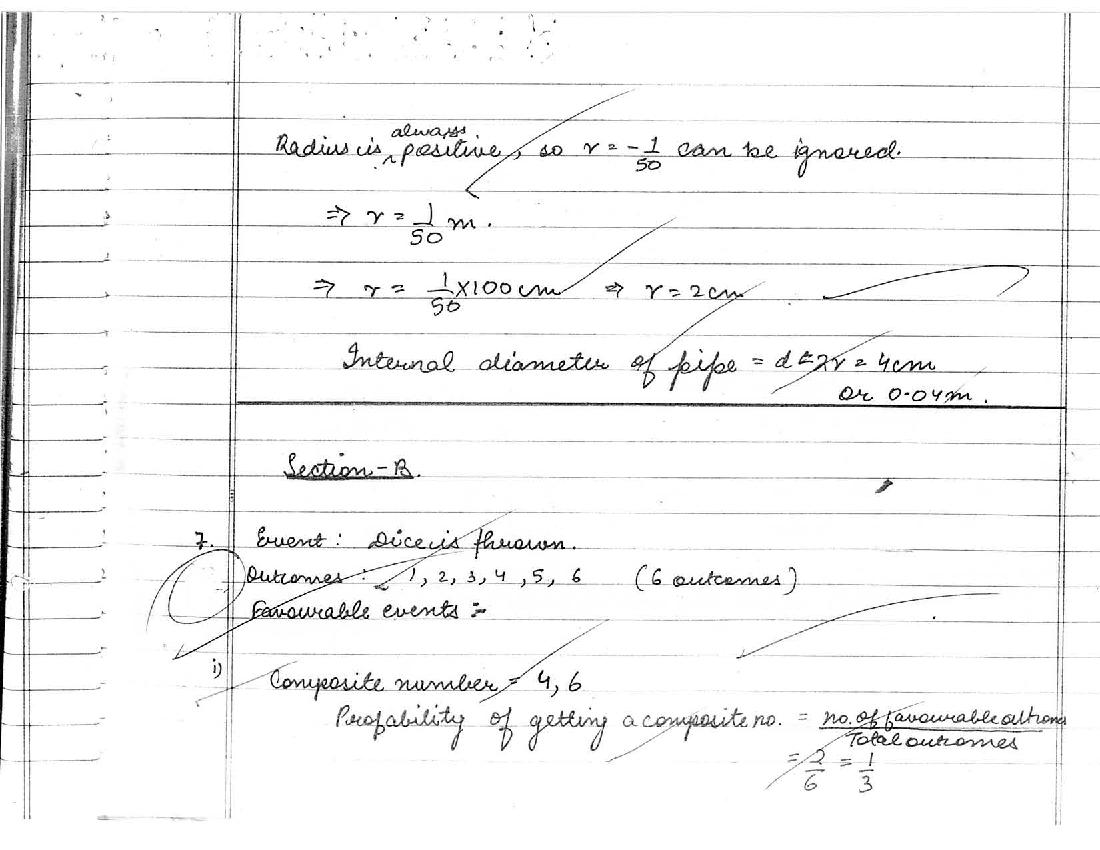 Radius is always positive, so r = -1/50 can be ignored.
⇒ r = 1/50 m.
⇒ r = 1/50 X100 cm ⇒ r = 2cm
Internal diameter of pipe = d = 2r = 4cm
or 0.04m.
Section-B.
7. Event : Dice is thrown.
Outcomes : 1, 2, 3, 4, 5, 6 (6 outcomes)
Favourable events :-
i) Composite number = 4, 6
Probability of getting a composite no. = no. of favourable / Total outcomes
= 2/6 = 1/3